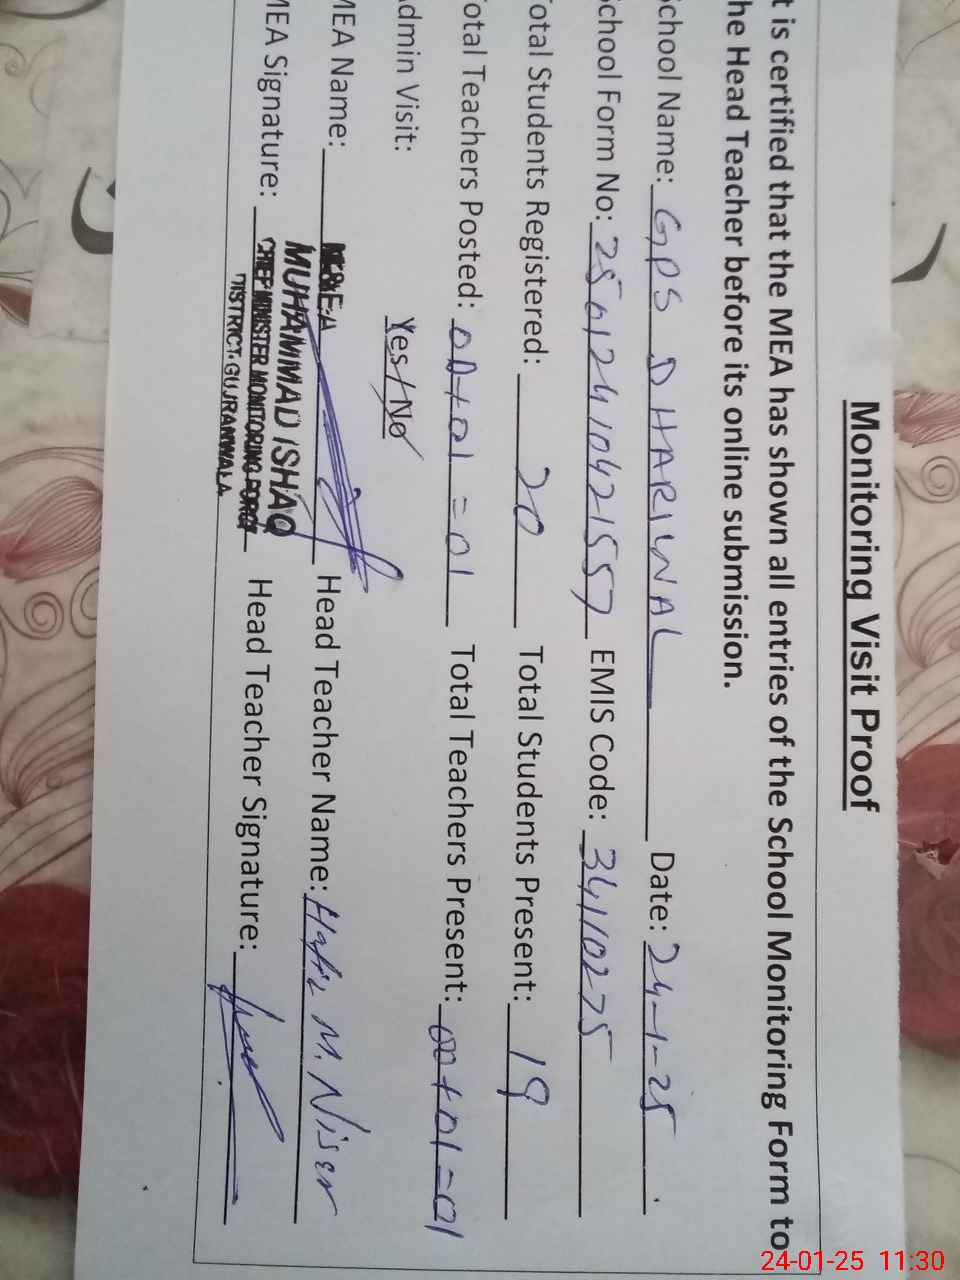 Monitoring Visit Proof
t is certified that the MEA has shown all entries of the School Monitoring Form to
he Head Teacher before its online submission.
chool Name: GPS DHARIWAL Date: 24-1-25
chool Form No: 25012410421557 EMIS Code: 34110275
otal Students Registered: 20 Total Students Present: 19
otal Teachers Posted: 00+01=01 Total Teachers Present: 00+01=01
dmin Visit: Yes/No
MEA Name: M&E.A Head Teacher Name: Hafiz M. Nisar
MUHAMMAD ISHAQ
MEA Signature: CHIEF MINISTER MONITORING FORCE Head Teacher Signature:
DISTRICT.GUJRANWALA
24-01-25 11:30